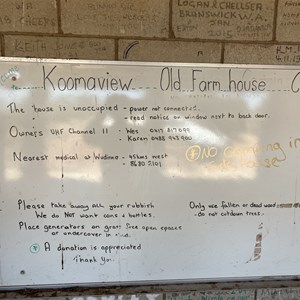 LOGAN & CHELLSEA
BRUNSWICK U.S.A
JAN
2015
KEITH
Koomaview Old Farm house
The house is unoccupied - power not connected.
- read notice on window next to back door.
Owners UHF Channel 11 - Wes
- Karen
Nearest medical at Wudinna - 45kms west
8680 2101
NO in
Please take away all your rubbish
We do NOT want cans & bottles.
Place generators on grass free open spaces
or undercover in
Only use fallen or dead wood
- do not cutdown trees.
A donation is appreciated
Thank you